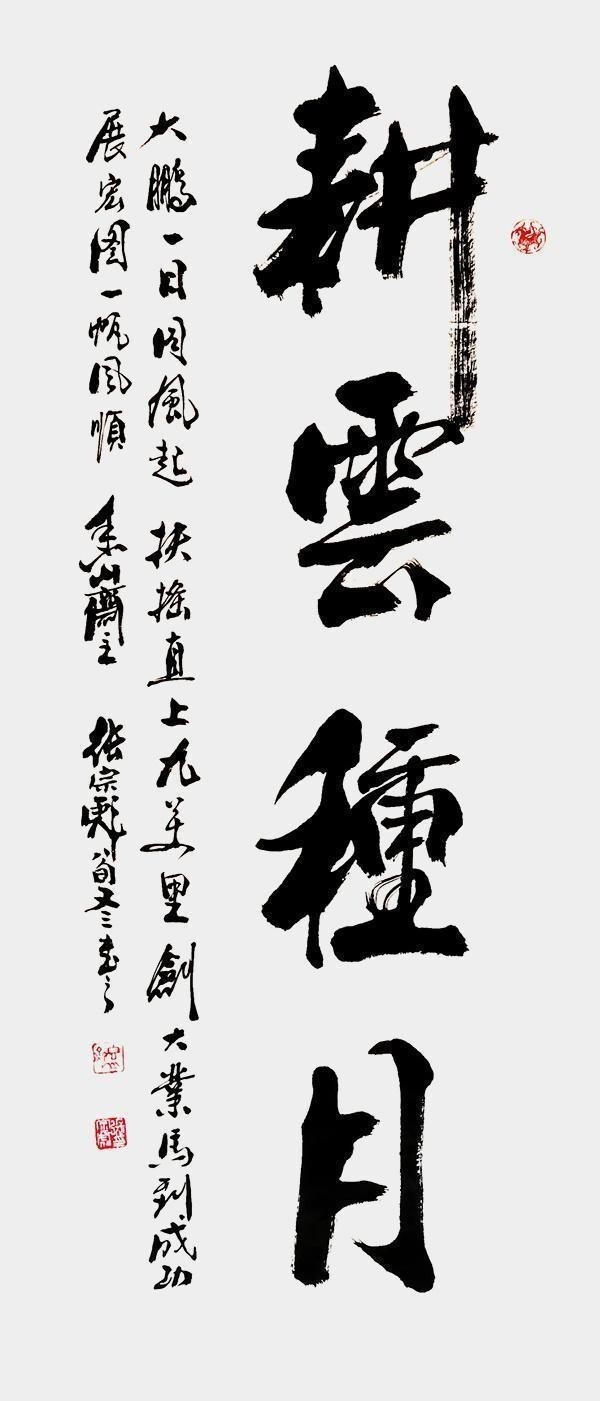 耕雲種月
大鵬一日同風起扶搖直上九万里創大業馬到成功
展宏图一帆風順 泰山齋主 張宗彪 旬冬書